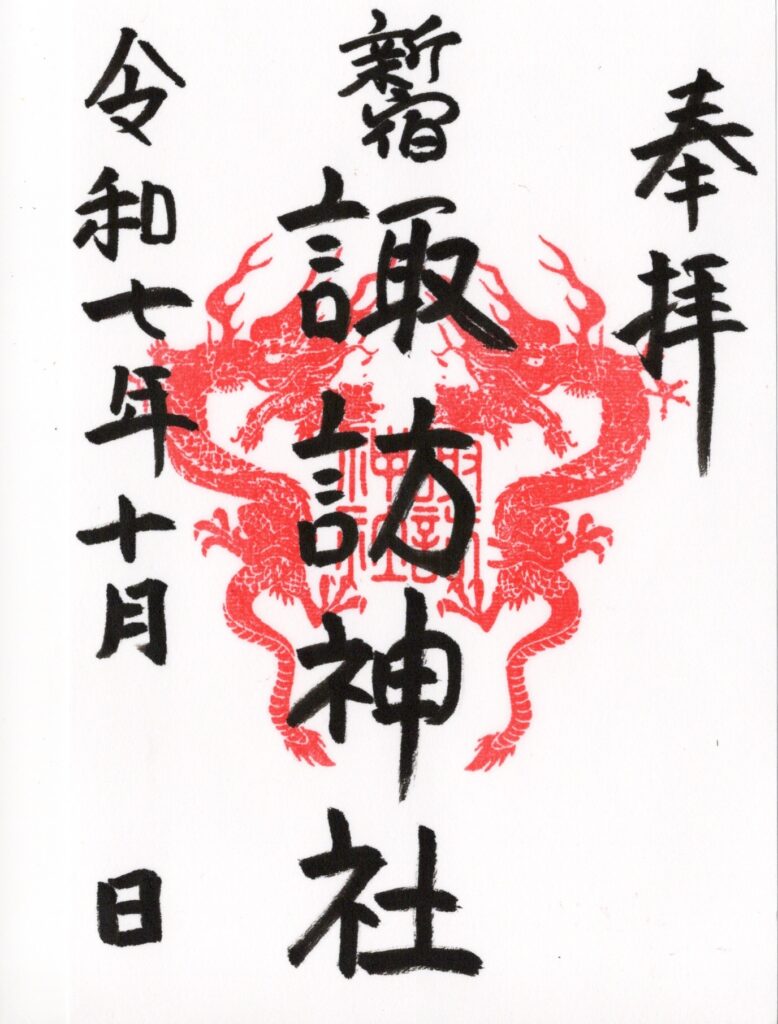 奉拝
新宿
諏訪神社
令和七年十月 日
諏訪
神社